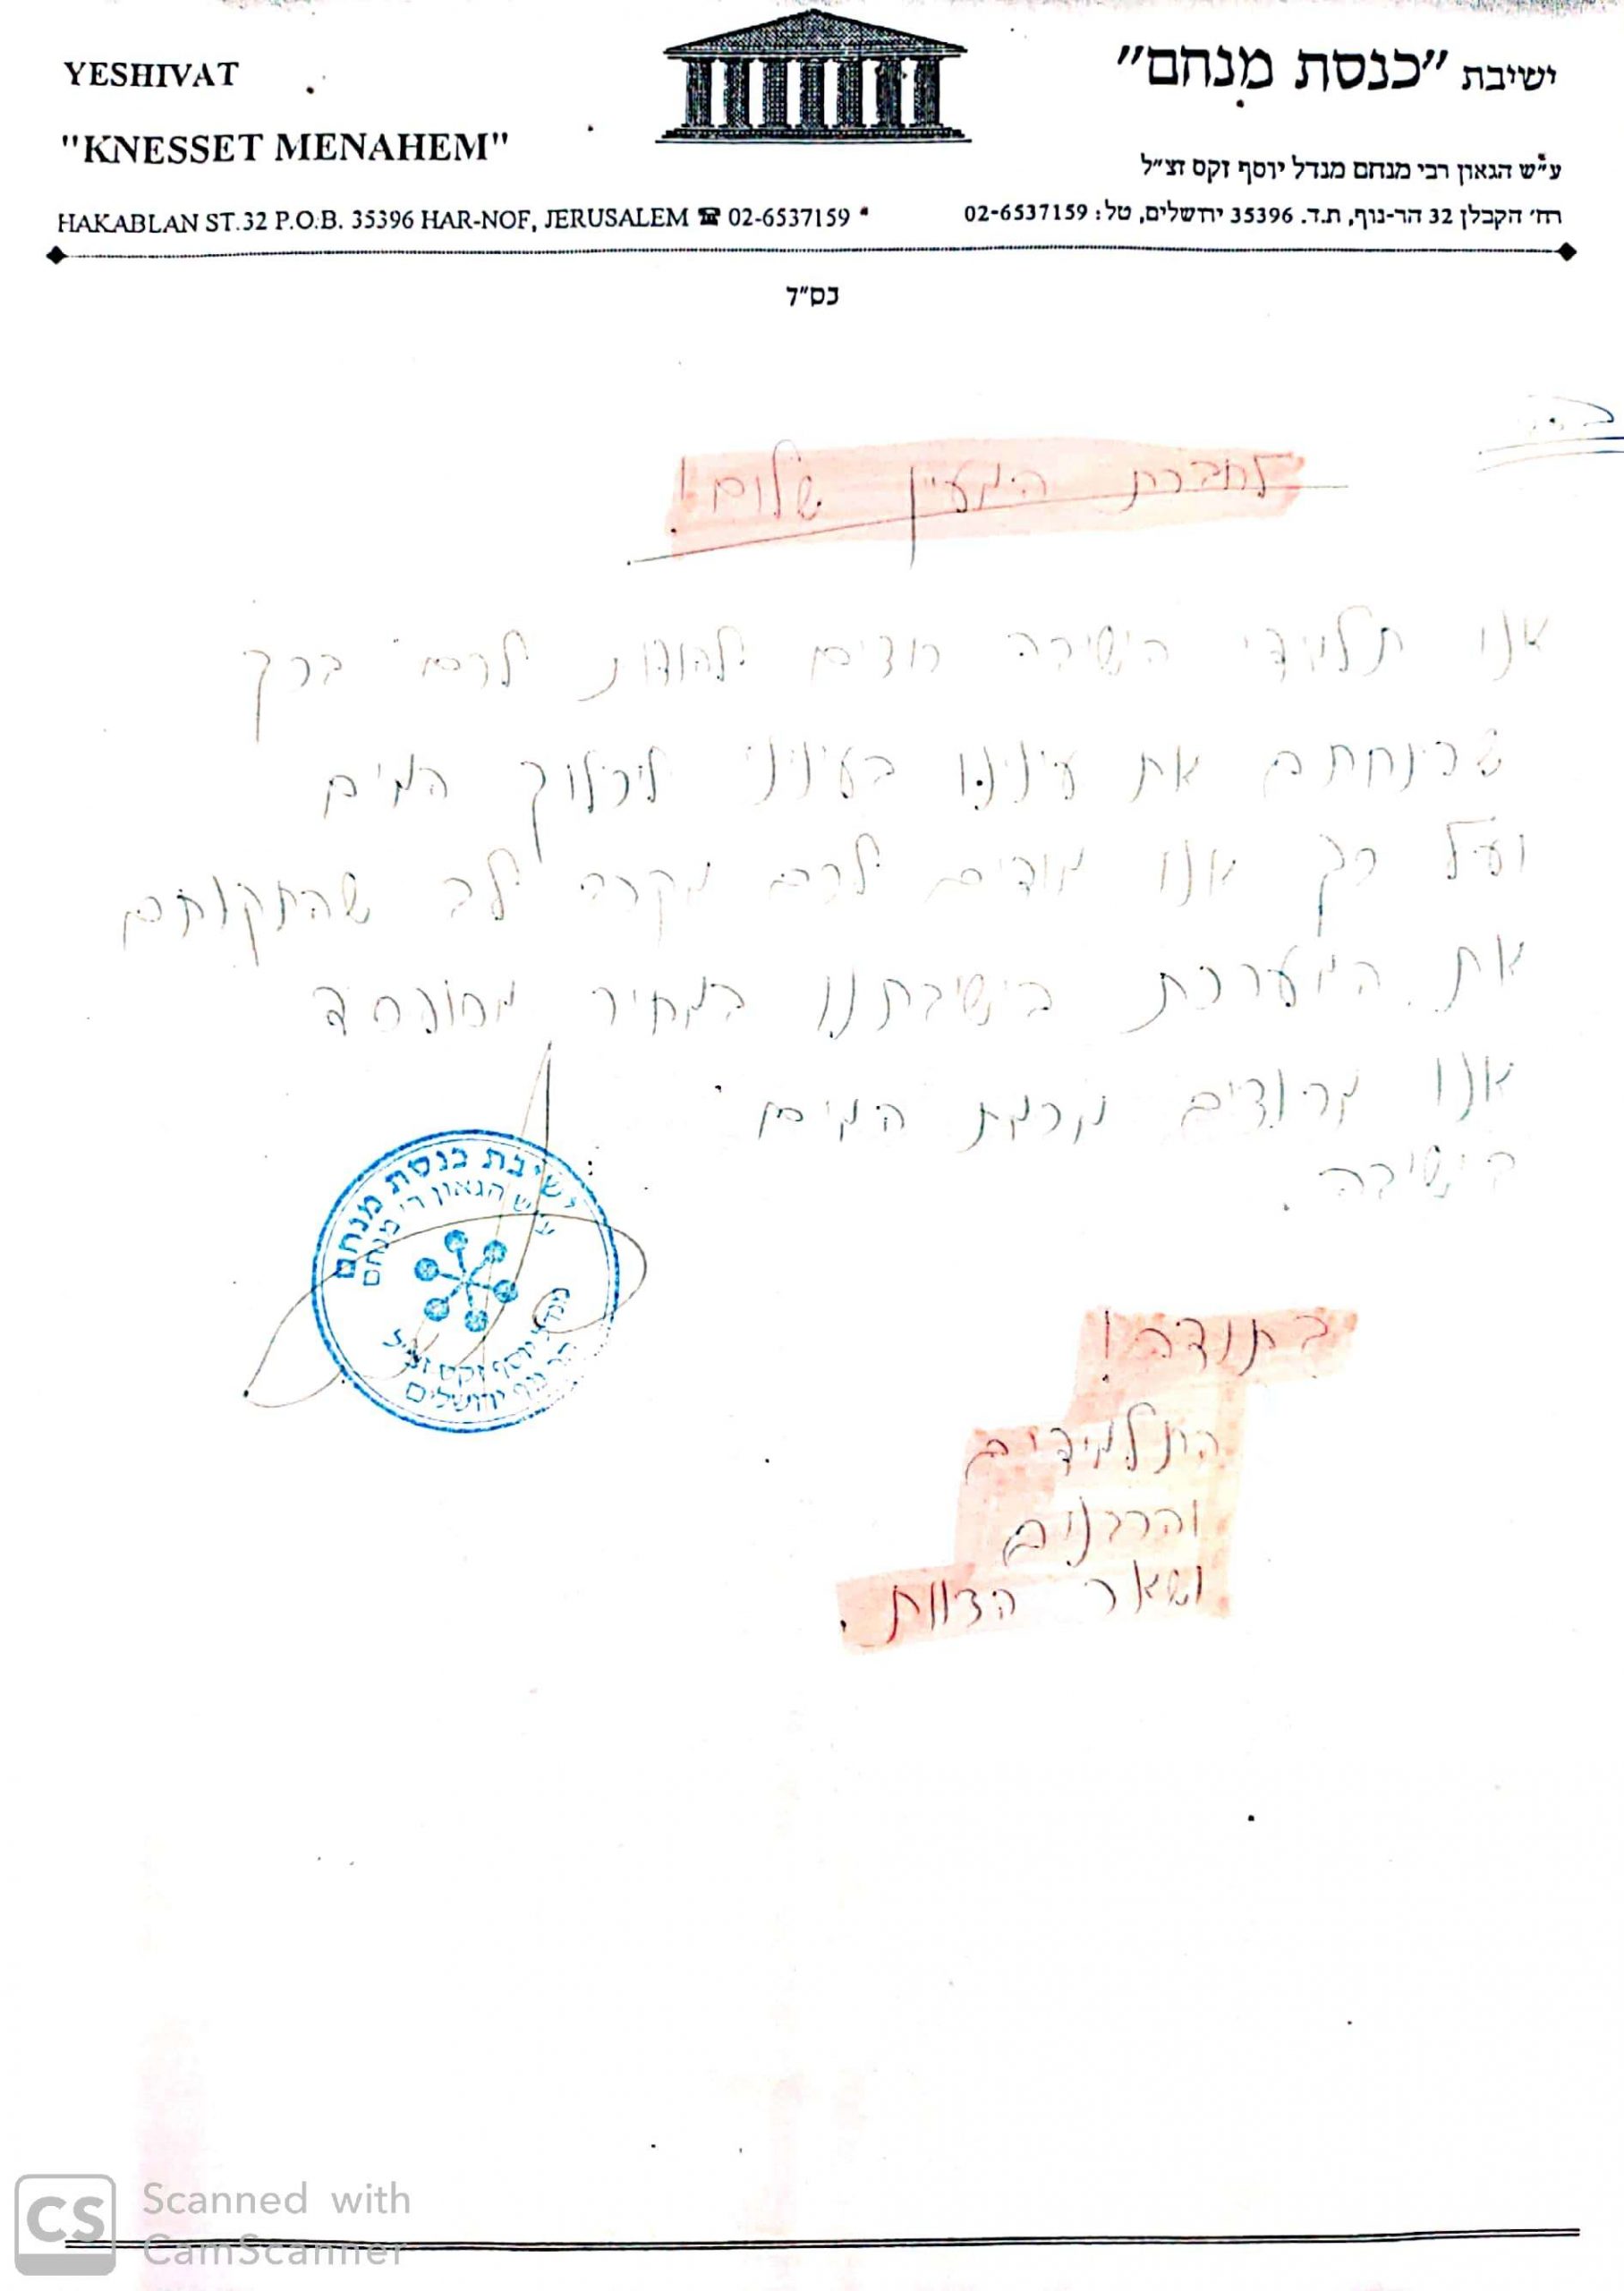 YESHIVAT
"KNESSET MENAHEM"
HAKABLAN ST.32 P.O.B. 35396 HAR-NOF, JERUSALEM ☎ 02-6537159
ישיבת "כנסת מנחם"
ע"ש הגאון רבי מנחם מנדל יוסף זקס זצ"ל
רח' הקבלן 32 הר-נוף, ת.ד. 35396 ירושלים, טל: 02-6537159
בס"ד
לחברת המעיין שלום!
אנו תלמידי הישיבה רוצים להודות לכם בכך
שפיתחתם את עינינו בעיניני לכלוך המים
ועל כך אנו מודים לכם מקרב לב שהתקנתם
את המערכת בישיבתנו במחיר
אנו מרוצים מרמת המים
בישיבה.
בתודה!
התלמידים
והרבנים
ושאר הצוות.
ישיבת כנסת מנחם
ע"ש הגאון ר' מנחם
מנדל יוסף זקס זצ"ל
הר נוף ירושלים
CS
Scanned with
CamScanner